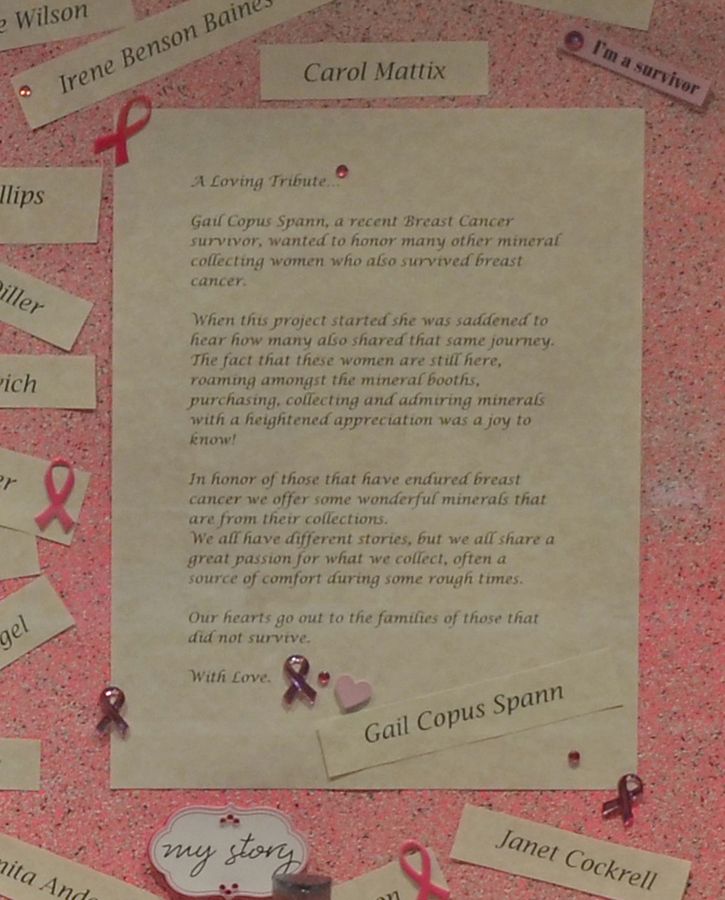 e Wilson
Irene Benson Baines
Carol Mattix
I'm a survivor
llips
iller
ich
er
gel
A Loving Tribute...
Gail Copus Spann, a recent Breast Cancer
survivor, wanted to honor many other mineral
collecting women who also survived breast
cancer.
When this project started she was saddened to
hear how many also shared that same journey.
The fact that these women are still here,
roaming amongst the mineral booths,
purchasing, collecting and admiring minerals
with a heightened appreciation was a joy to
know!
In honor of those that have endured breast
cancer we offer some wonderful minerals that
are from their collections.
We all have different stories, but we all share a
great passion for what we collect, often a
source of comfort during some rough times.
Our hearts go out to the families of those that
did not survive.
With Love.
Gail Copus Spann
my story
Janet Cockrell
nita And
on